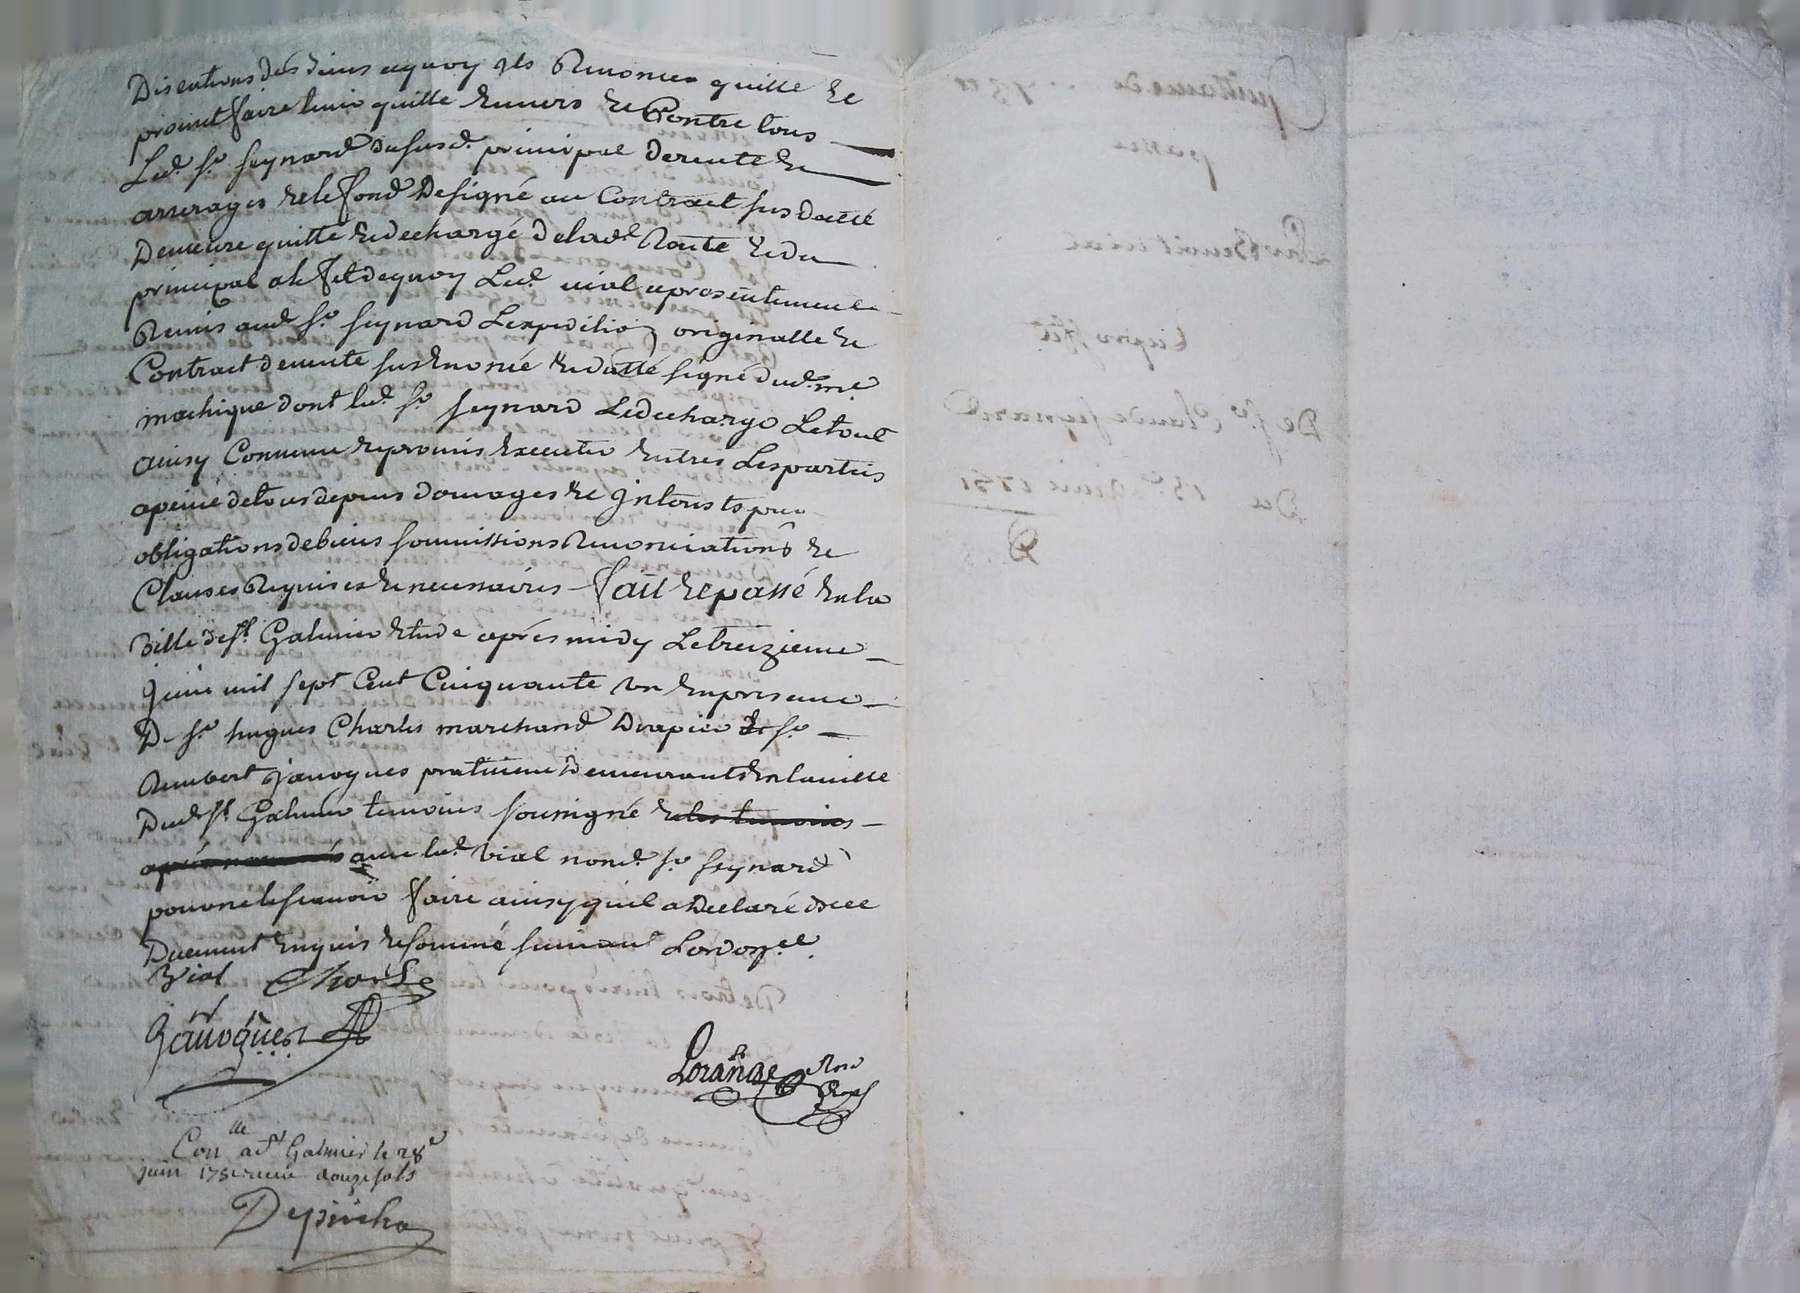 Discutions des biens aquoy ils Renonce quitte et
promet faire tenir quitte Envers et Contre tous
Led. Sr. Seynard susd. principal derente et
arrerages et le fond Designé au Contract sus datté
Demeure quitte et dechargé delad. Rente et du
principal aleffet dequoy Led. vial apresentement
Remis aud. Sr. Seynard Lexpedition originalle de
Contract de vente susEnoncé et datté signé dud. me
machique dont led. Sr. Seynard Ledecharge Letout
ainsy Convenu et promis Executer Entres Les parties
apeine detous depens domages et Interests par
obligations de biens soumissions Renonciations et
Clauses Requises et necessaires fait et passé En la
ville de St. Galmier Etude après midy Le treizieme
Juin mil sept Cent Cinquante un En presence
De Sr. hugues Charles marchand Drapier et Sr.
Rembert Janoques praticien Demeurants En la ville
Dud. St. Galmier temoins soussigné et les temoins
avec led. vial non led. Sr. Seynard
pour ne le scavoir faire ainsy quil a Declaré de ce
Duement Enquis et sommé suivant Lordonce.
Vial Charle
Janoques
Lorange Nore
Royal
Conlle a St Galmier le 28e
juin 1751 receu douze sols
Depinha
Quittance de
passée
Par Benoit vial
au proffit
De Sr. Claude Seynard
Du 13e Juin 1751